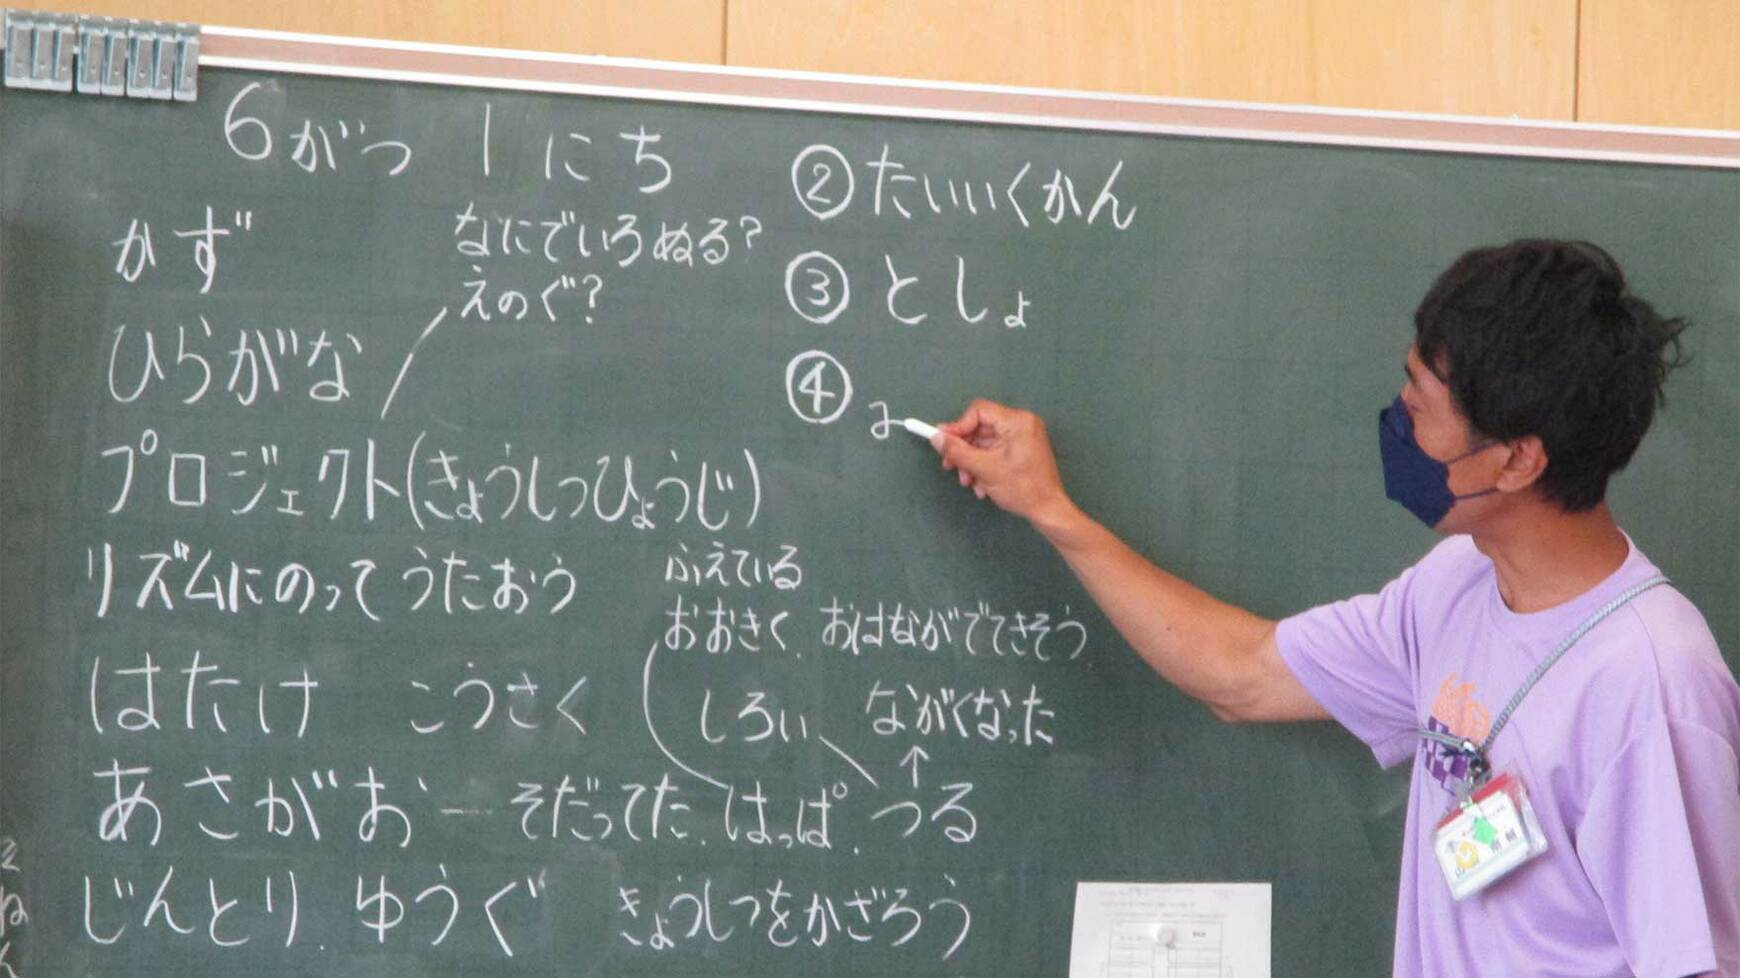 6がつ1にち
かず
なにでいろぬる?
えのぐ?
ひらがな
プロジェクト(きょうしつひょうじ)
リズムにのってうたおう
はたけ こうさく
ふえている
おおきく. おはながでてきそう.
しろい ながくなった
↑
あさがお—そだってた.はっぱ.つる
じんとり.ゆうぐ きょうしつをかざろう
②たいいくかん
③としょ
④
2ねん